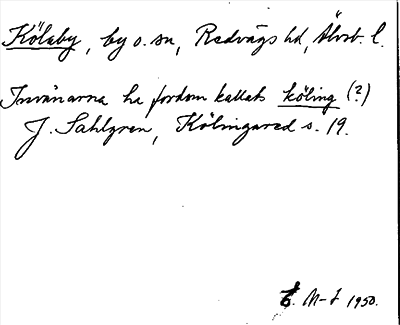 Kölaby, by o. sn, Redvägs hd, Älvsb. l.
Invånarna ha fordom kallats köling (?)
J. Sahlgren, Kölingared s. 19.
M-Z 1950.